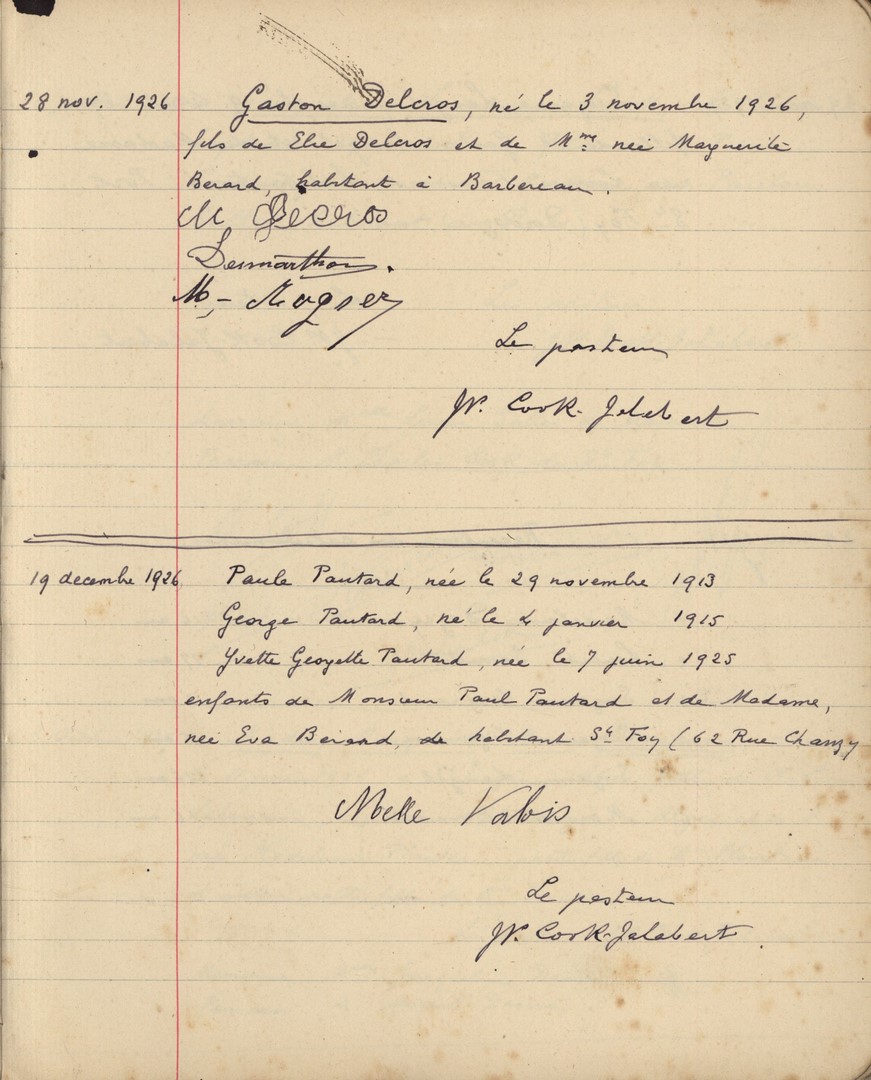 28 nov. 1926 Gaston Delcros, né le 3 novembre 1926,
fils de Elie Delcros et de Mme née Marguerite
Berard, habitant à Barbereau.
M Delcros
Desmarthon.
M.
Le pasteur
W. Cook-Jalabert
19 decembre 1926 Paule Pautard, née le 29 novembre 1913
George Pautard, né le 4 janvier 1915
Yvette Georgette Pautard, née le 7 juin 1925
enfants de Monsieur Paul Pautard et de Madame,
née Eva Berard, habitant Ste Foy (62 Rue Chanzy
Melle Valois
Le pasteur
W. Cook-Jalabert.